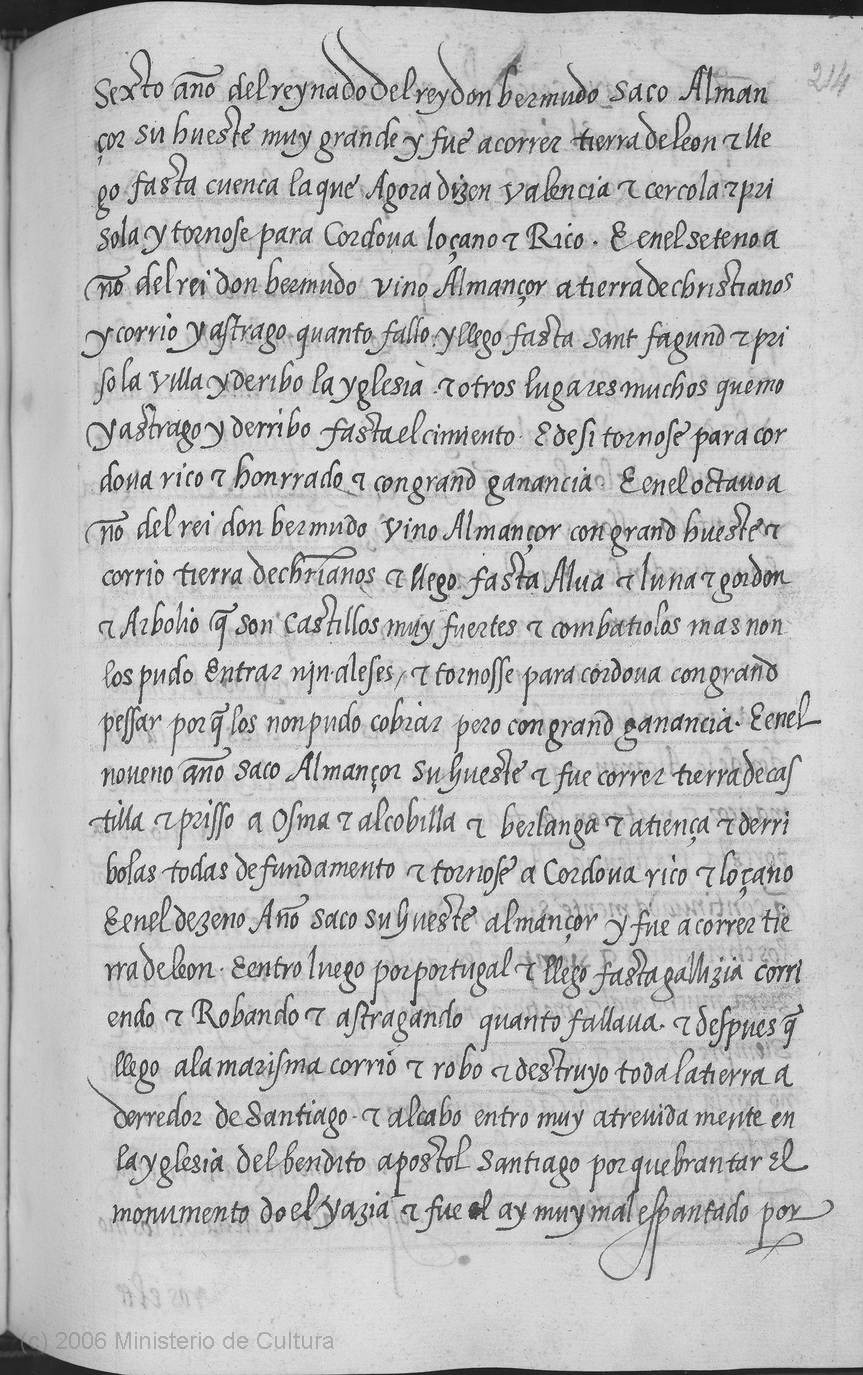 214
Sexto año del reynado del rey don bermudo saco Alman
çor su hueste muy grande y fue a correr tierra de leon ⁊ lle
go fasta cuenca la que Agora dizen valencia ⁊ cercola ⁊ pri
sola y tornose para Cordova loçano ⁊ Rico . E en el seteno a
ño del rei don bermudo vino Almançor a tierra de christianos
y corrio y astrago quanto fallo . y llego fasta Sant fagund ⁊ pri
so la villa y deribo la yglesia . ⁊ otros lugares muchos quemo
y astrago y derribo fasta el cimiento . E desi tornose para cor
dova rico ⁊ honrrado ⁊ con grand ganancia . E en el octavo a
ño del rei don bermudo vino Almançor con grand hueste ⁊
corrio tierra de chrianos ⁊ llego fasta Alva ⁊ luna ⁊ gordon
⁊ Arbolio q̃ son castillos muy fuertes ⁊ combatiolos mas non
los pudo Entrar nin aleses / ⁊ tornosse para cordova con grand
pessar por q̃ los non pudo cobrar pero con grand ganancia . E en el
noveno año saco Almançor su hueste ⁊ fue correr tierra de cas
tilla ⁊ prisso a Osma ⁊ alcobilla ⁊ berlanga ⁊ atiença ⁊ derri
bolas todas de fundamento ⁊ tornose a Cordova rico ⁊ loçano
E en el dezeno Año saco su hueste almançor y fue a correr tie
rra de leon . E entro luego por portugal ⁊ llego fasta gallizia corri
endo ⁊ Robando ⁊ astragando quanto fallava . ⁊ despues q̃
llego a la marisma corrio ⁊ robo ⁊ destruyo toda la tierra a
derredor de Santiago . ⁊ al cabo entro muy atrevida mente en
la yglesia del bendito apostol Santiago por quebrantar El
monumento do el yazia ⁊ fue el ay muy mal espantado por
(c) 2006 Ministerio de Cultura